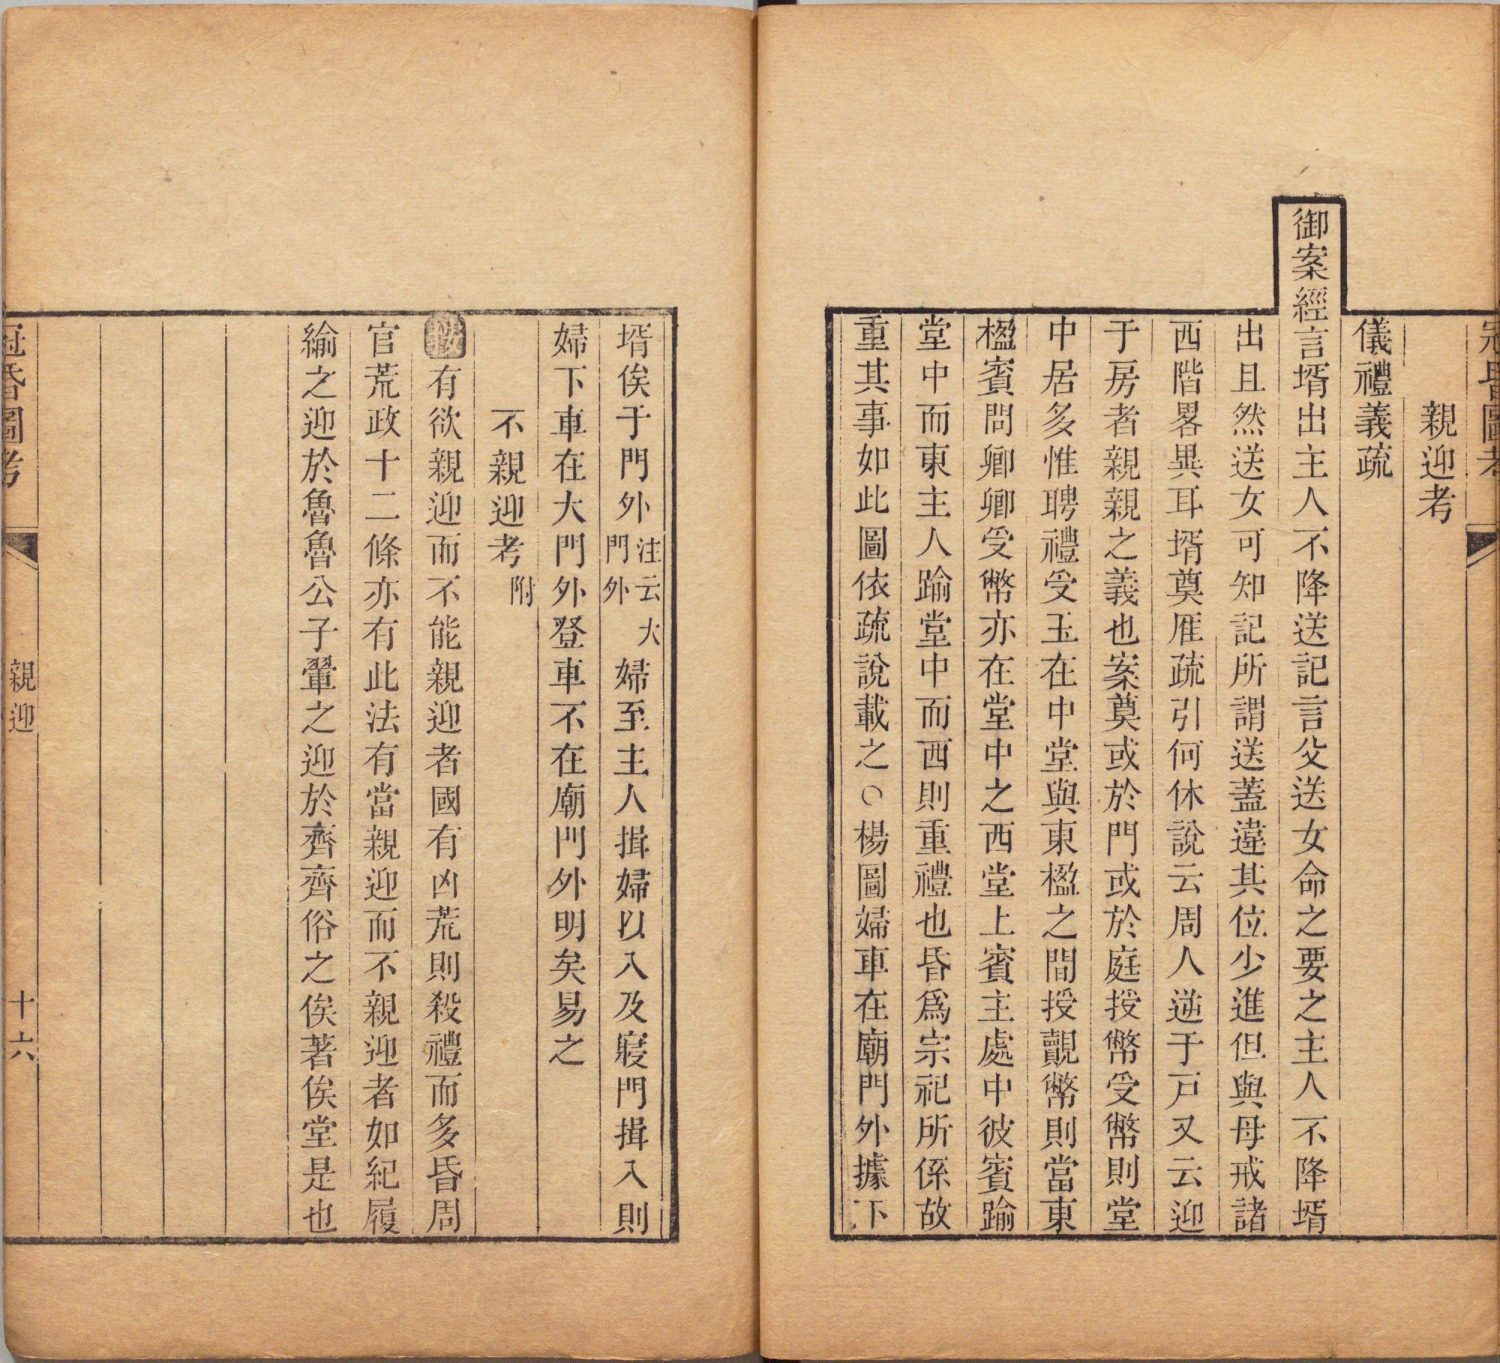 冠昏圖考
親迎考
儀禮義疏
御案經言壻出主人不降送記言父送女命之要之主人不降壻
出且然送女可知記所謂送蓋違其位少進但與母戒諸
西階畧異耳壻奠鴈疏引何休說云周人逆于戸又云迎
于房者親親之義也案奠或於門或於庭授幣受幣則堂
中居多惟聘禮受玉在中堂與東楹之間授覿幣則當東
楹賓問卿卿受幣亦在堂中之西堂上賓主處中彼賓踰
堂中而東主人踰堂中而西則重禮也昏爲宗祀所係故
重其事如此圖依疏說載之○楊圖婦車在廟門外據下
壻俟于門外注云大門外婦至主人揖婦以入及寢門揖入則
婦下車在大門外登車不在廟門外明矣易之
不親迎考附
有欲親迎而不能親迎者國有凶荒則殺禮而多昏周
官荒政十二條亦有此法有當親迎而不親迎者如紀履
緰之迎於魯魯公子翬之迎於齊齊俗之俟著俟堂是也
冠昏圖考
親迎
十六